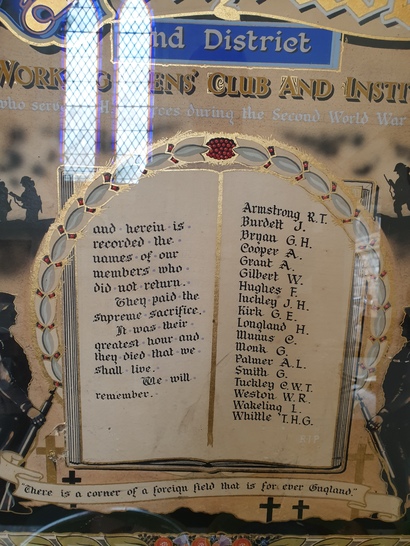 and District
Working Mens' Club And Instit
who serv H Forces during the Second World War
and herein is
recorded the
names of our
members who
did not return.
They paid the
supreme sacrifice.
It was their
greatest hour and
they died that we
shall live.
We will
remember.
Armstrong R.T.
Burdett J.
Bryan G.H.
Cooper A.
Grant A.
Gilbert W.
Hughes F.
Inchley J.H.
Kirk G.E.
Longland H.
Munns C.
Monk G.
Palmer A.L.
Smith G.
Tuckley C.W.T.
Weston W.R.
Wakeling L.
Whittle T.H.G.
R.I.P.
"There is a corner of a foreign field that is for ever England."